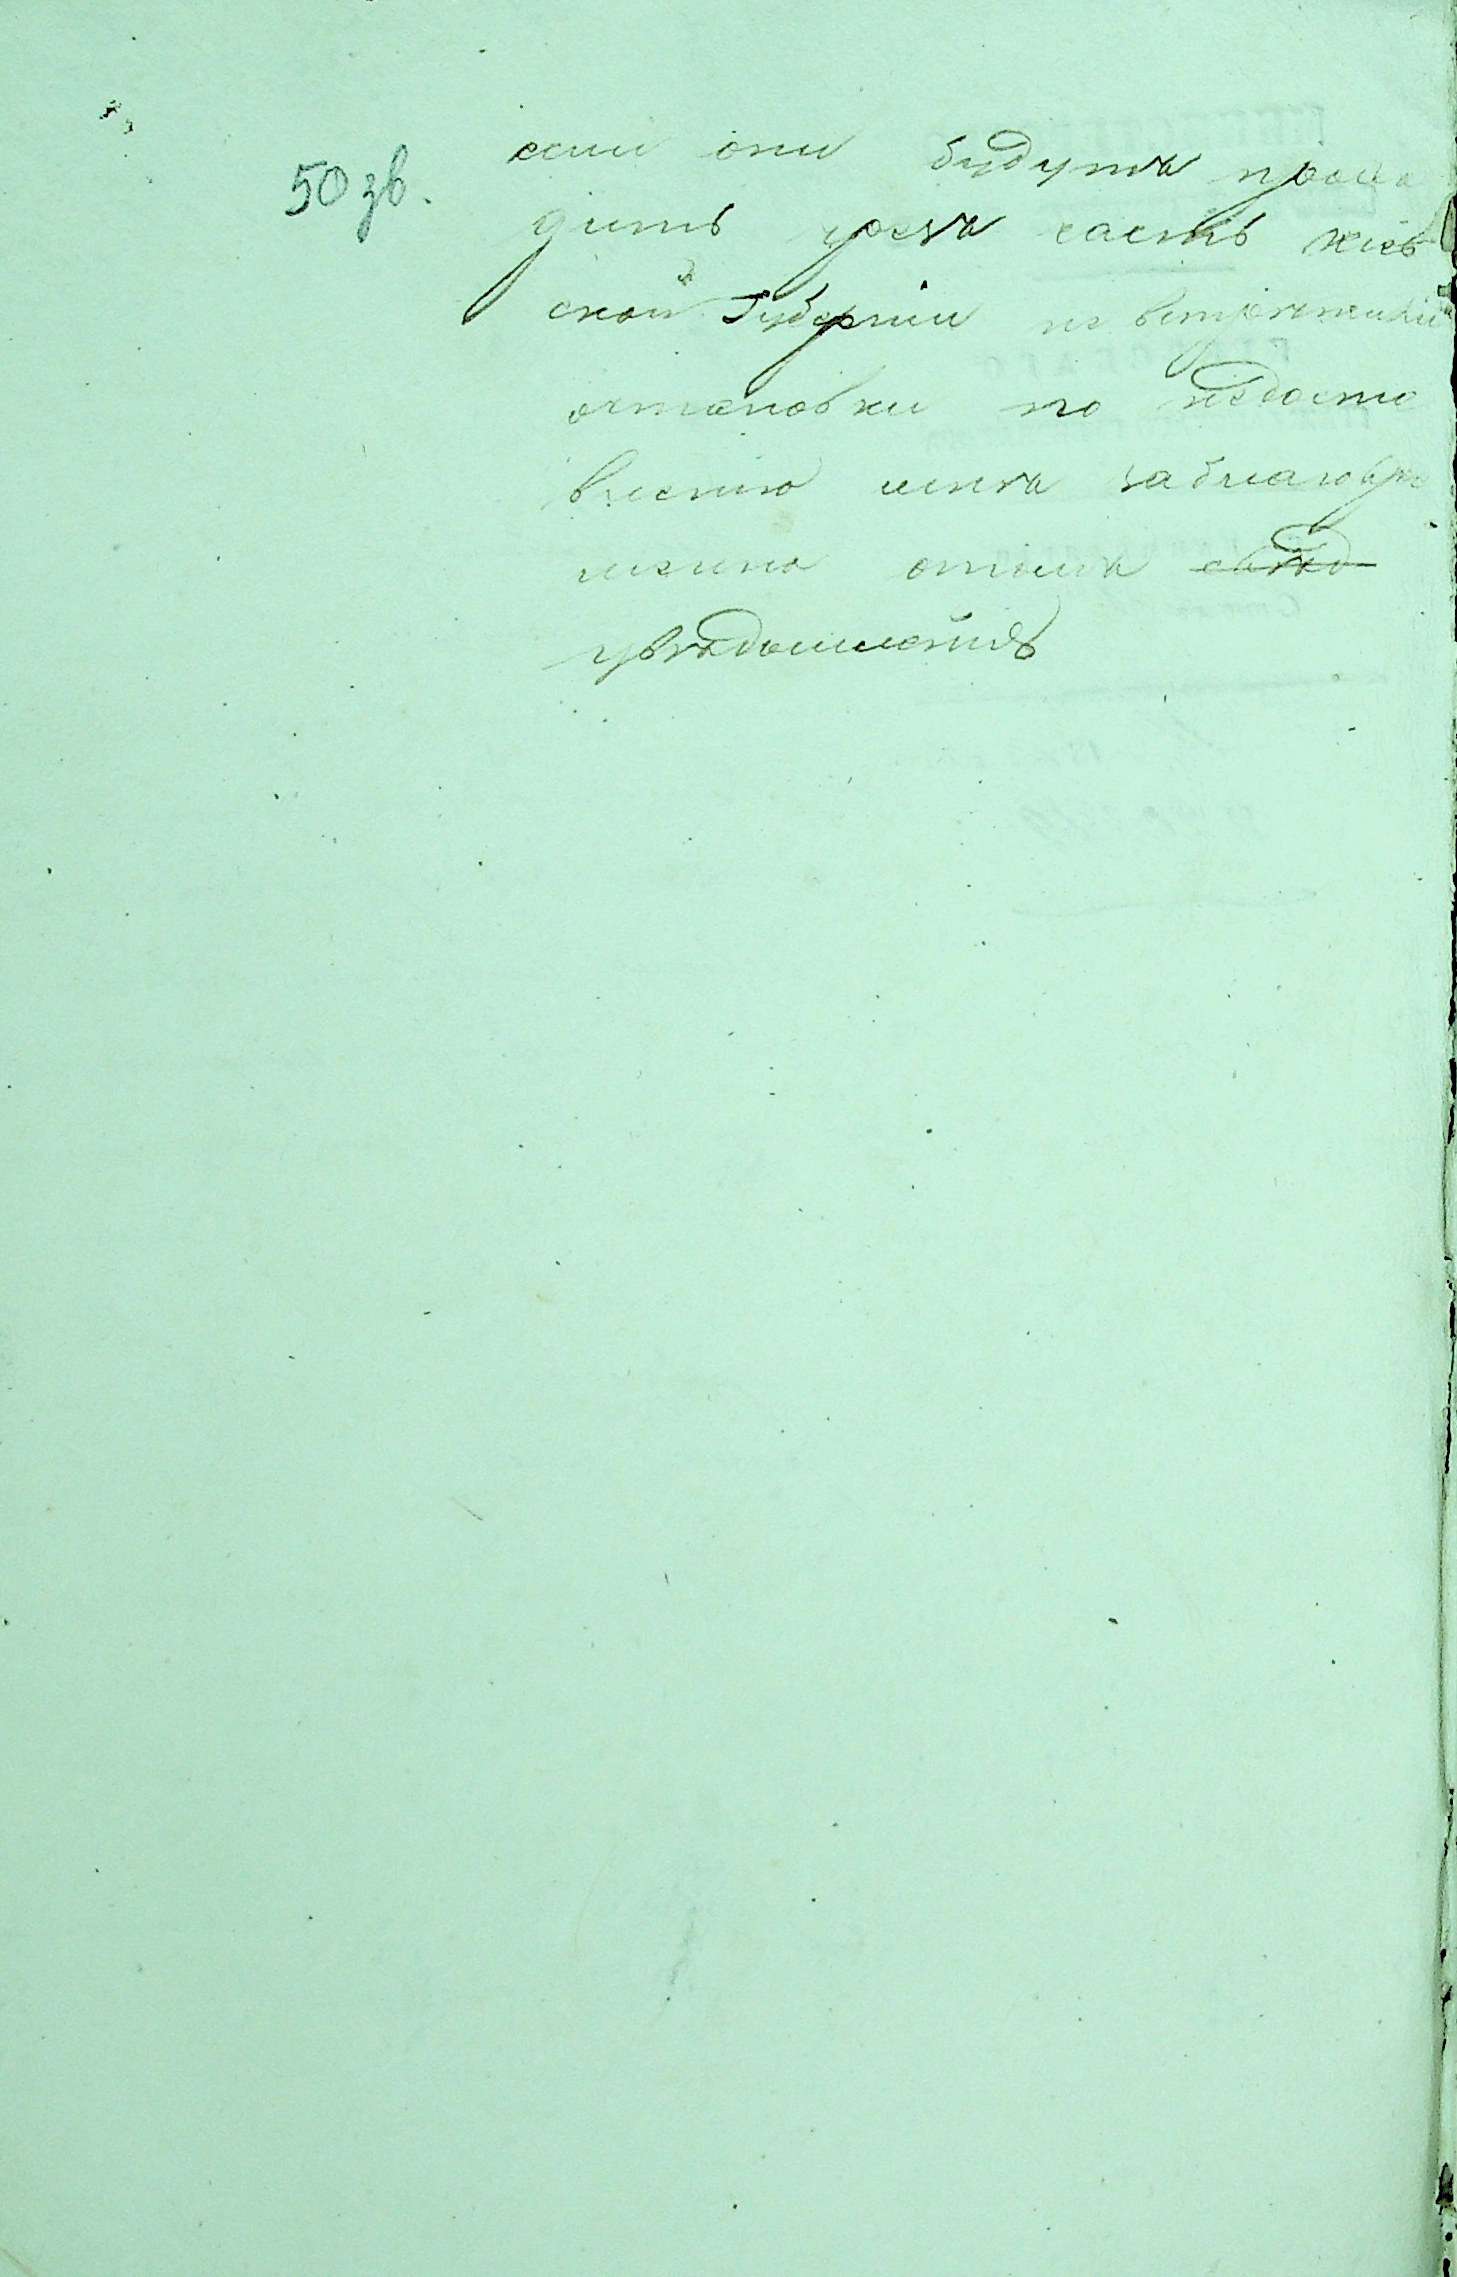 50 зв.
если они будутъ прохо
дить чрезъ часть Кіев
ской Губерніи не встрѣтили
остановки по недоста
вленію мнѣ заблаговре
менно о томъ свѣд
увѣдомленія